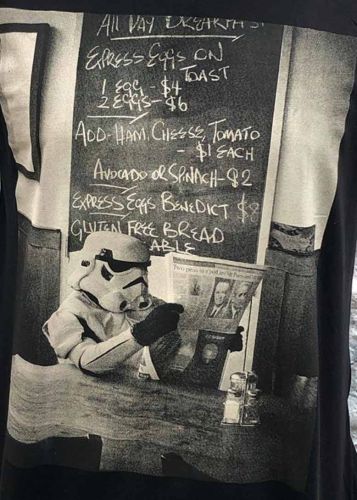 ALL DAY BREAKFAST
EXPRESS EGGS ON
TOAST
1 EGG - $4
2 EGGS - $6
ADD-HAM, CHEESE, TOMATO
- $1 EACH
AVOCADO OR SPINACH - $2
EXPRESS EGGS BENEDICT $8
GLUTEN FREE BREAD
ABLE